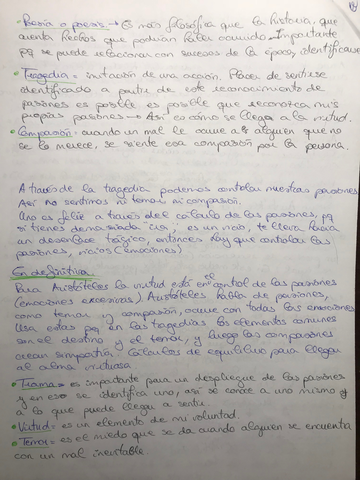 • Poesía o poiesis → Es más filosófica que la historia, que
cuenta hechos que podrían haber ocurrido. Importante
pq se puede relacionar con sucesos de la época, identificarse
• Tragedia = imitación de una acción. Placer de sentirse
identificado a partir de este reconocimiento de
pasiones es posible es posible que reconozca mis
propias pasiones → Así es cómo se llega a la virtud.
• Compasión: cuando un mal le ocurre a alguien que no
se lo merece, se siente esa compasión por la persona.
A través de la tragedia podemos controlar nuestras pasiones
Así no sentimos ni temor ni compasión.
Uno es feliz a través del cálculo de las pasiones, pq
si tienes demasiada ira, es un vicio, te lleva hacia
un desenlace trágico, entonces hay que controlar las
pasiones, vicios (emociones)
En definitiva
Para Aristóteles la virtud está en el control de las pasiones
(emociones excesivas). Aristóteles habla de pasiones,
como temor y compasión, ocurre con todas las emociones
Usa estas pq en las tragedias los elementos comunes
son el destino y el temor, y luego las compasiones
crean simpatía. Cálculos de equilibrio para llegar
al alma virtuosa
• Trama = es importante para un despliegue de las pasiones
y en eso se identifica uno, así se conoce a uno mismo y
a lo que puede llegar a sentir.
• Virtud = es un elemento de mi voluntad.
• Terror = es el miedo que se da cuando alguien se encuentra
con un mal inevitable.